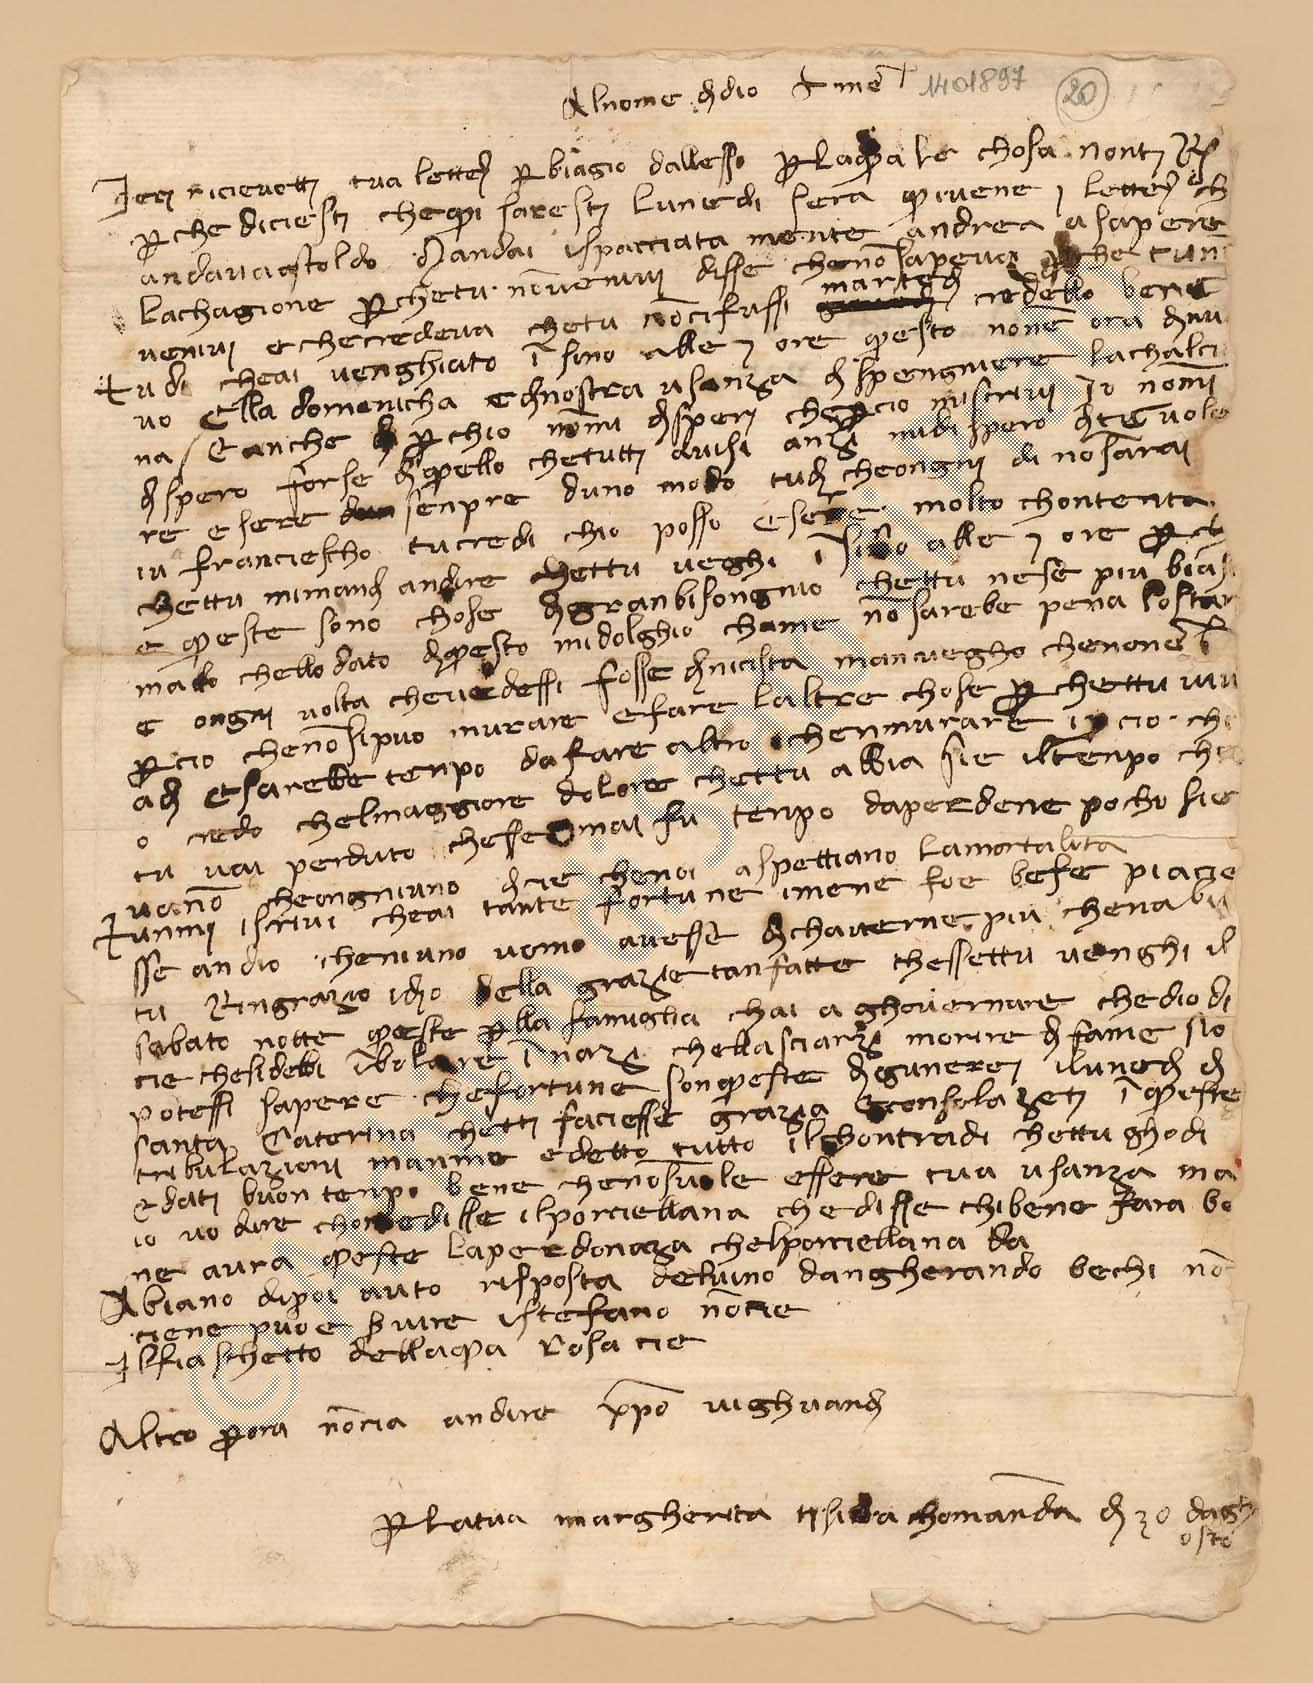 Al nome di dio † ame 1401897 20
Ieri ricievetti tua lettera per biagio dallesso per la quale chosa non ti
perche diciesti che qui saresti lunedi sera qui vene j lettera ch
andava a stoldo Mandai ispacciata mente andrea a sapere
lachagione perche tu novenivi disse che no sapeva perche tu n
venivi e che credeva che tu nocifussi martedi credetto bene
tu di che ai venghiato isino alle 7 ore questo none ora di nu
vo Ella domenicha e di nostra usanza di spengniere la chalci
na / Eanche perchio nomi disperi che per cio mi scrivi Io nomi
dispero forse di quello che tutti avisi anzi mi dispero di te vole
re esere senpre duno modo tu di che ongni di no sarai
iu franciescho tu credi chio posso esere molto chontenta
chettu mi mandi andire chettu veghi isino alle 7 ore perch
e queste sono chose di gran bisongnio chettu nese piu biasi
mato chello dato di questo mi dolghio cha me no sarebe pena lo star
e ongni volta che vedessi fosse di nicista ma i veghо che none
per cio che no si puo murare e fare laltre chose perchettu viv
adi e sarebbe tenpo da fare altro che nmurare i cio chi
o credo chel maggiore dolore chettu abbia sie il tenpo che
tu vai perduto chesse mai fu tenpo da perdene pocho sie
vano cheongniuno dicie che noi aspettiano la mortalita
tu mi iscrivi che ai tante fortune i mene foe befe piacie
sse a n dio che niuno uomo avesse di chativerne piu che nabi
tu Ringrazio idio della grazie tanfatte chessettu venghi il
sabato notte queste per lla famiglia chai a ghovernare che dio di
cie che si debbi ibolare inazi chellasciarsi morire di fame s io
potessi sapere che fortune son queste di gunerei ilunedi di
santa Caterina che ti faciesse grazia e consolazeti i queste
tribulazioni manime e detto tutto il chontradi chettu ghodi
e dati buon tenpo bene che no suole essere tua usanza ma
io vo dire chome disse il porciellana che disse chi bene fara be
ne avra queste la perdonaza chelporciellana da
Abiano dipoi auto risposta del vino dangherando bechi no
ciene puo e servire istefano nocie
Il fiaschetto dellaqua rosa cie
Altro per ora nocia andire xpo vi ghuardi
per la tua margherita ti si rachomanda di 30 dagh
osto